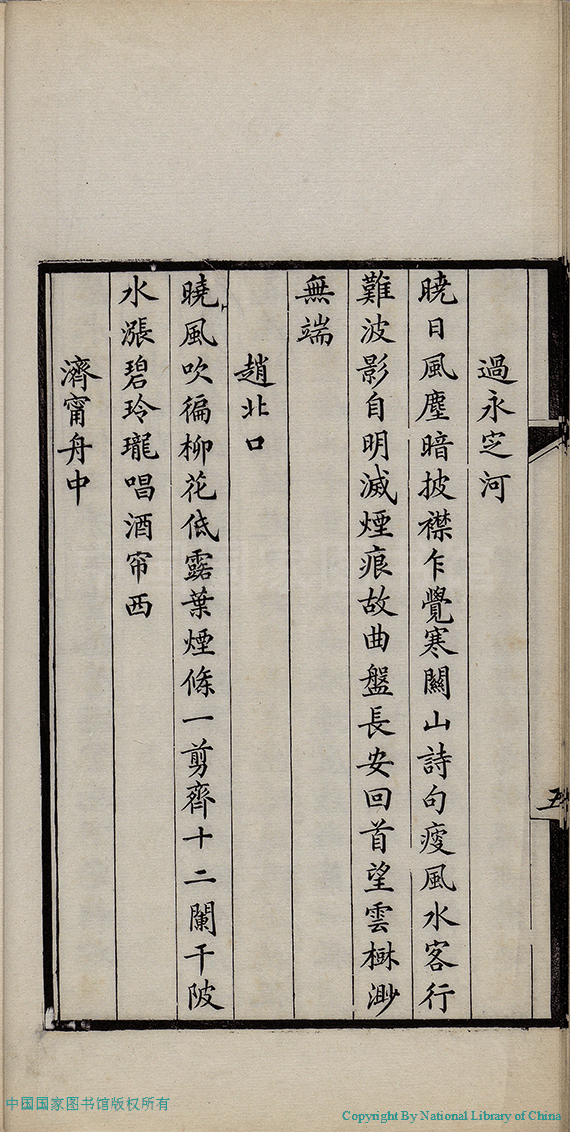 過永定河
曉日風塵暗披襟乍覺寒關山詩句瘦風水客行
難波影自明滅煙痕故曲盤長安回首望雲樹渺
無端
趙北口
曉風吹徧柳花低露葉煙條一剪齊十二闌干陂
水漲碧玲瓏唱酒帘西
濟甯舟中
五
中国国家图书馆版权所有
Copyright By National Library of China